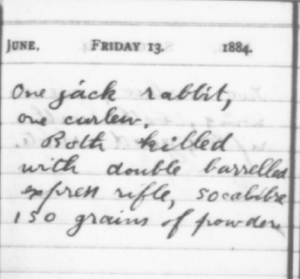 JUNE, FRIDAY 13. 1884.
One jack rabbit,
one curlew.
Both killed
with double barrelled
express rifle, 50calibre
150 grains of powder